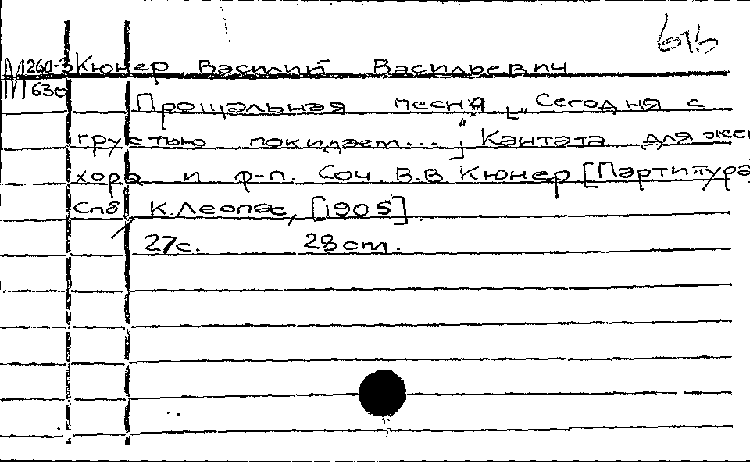 М 260-3 Кюнер Василий Васильевич
63е
Прощальная песня [„Сегодня с
грустью покидаем..."] Кантата для жен
хора и ф-п. Соч. В.В. Кюнер [Партитура
Спб К. Леопас, [1905]
27с. 28 cm.